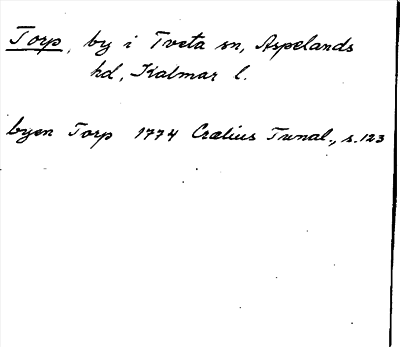 Torp, by i Tveta sn, Aspelands
hd, Kalmar l.
byen Torp 1774 Crælius Tunal., s. 123